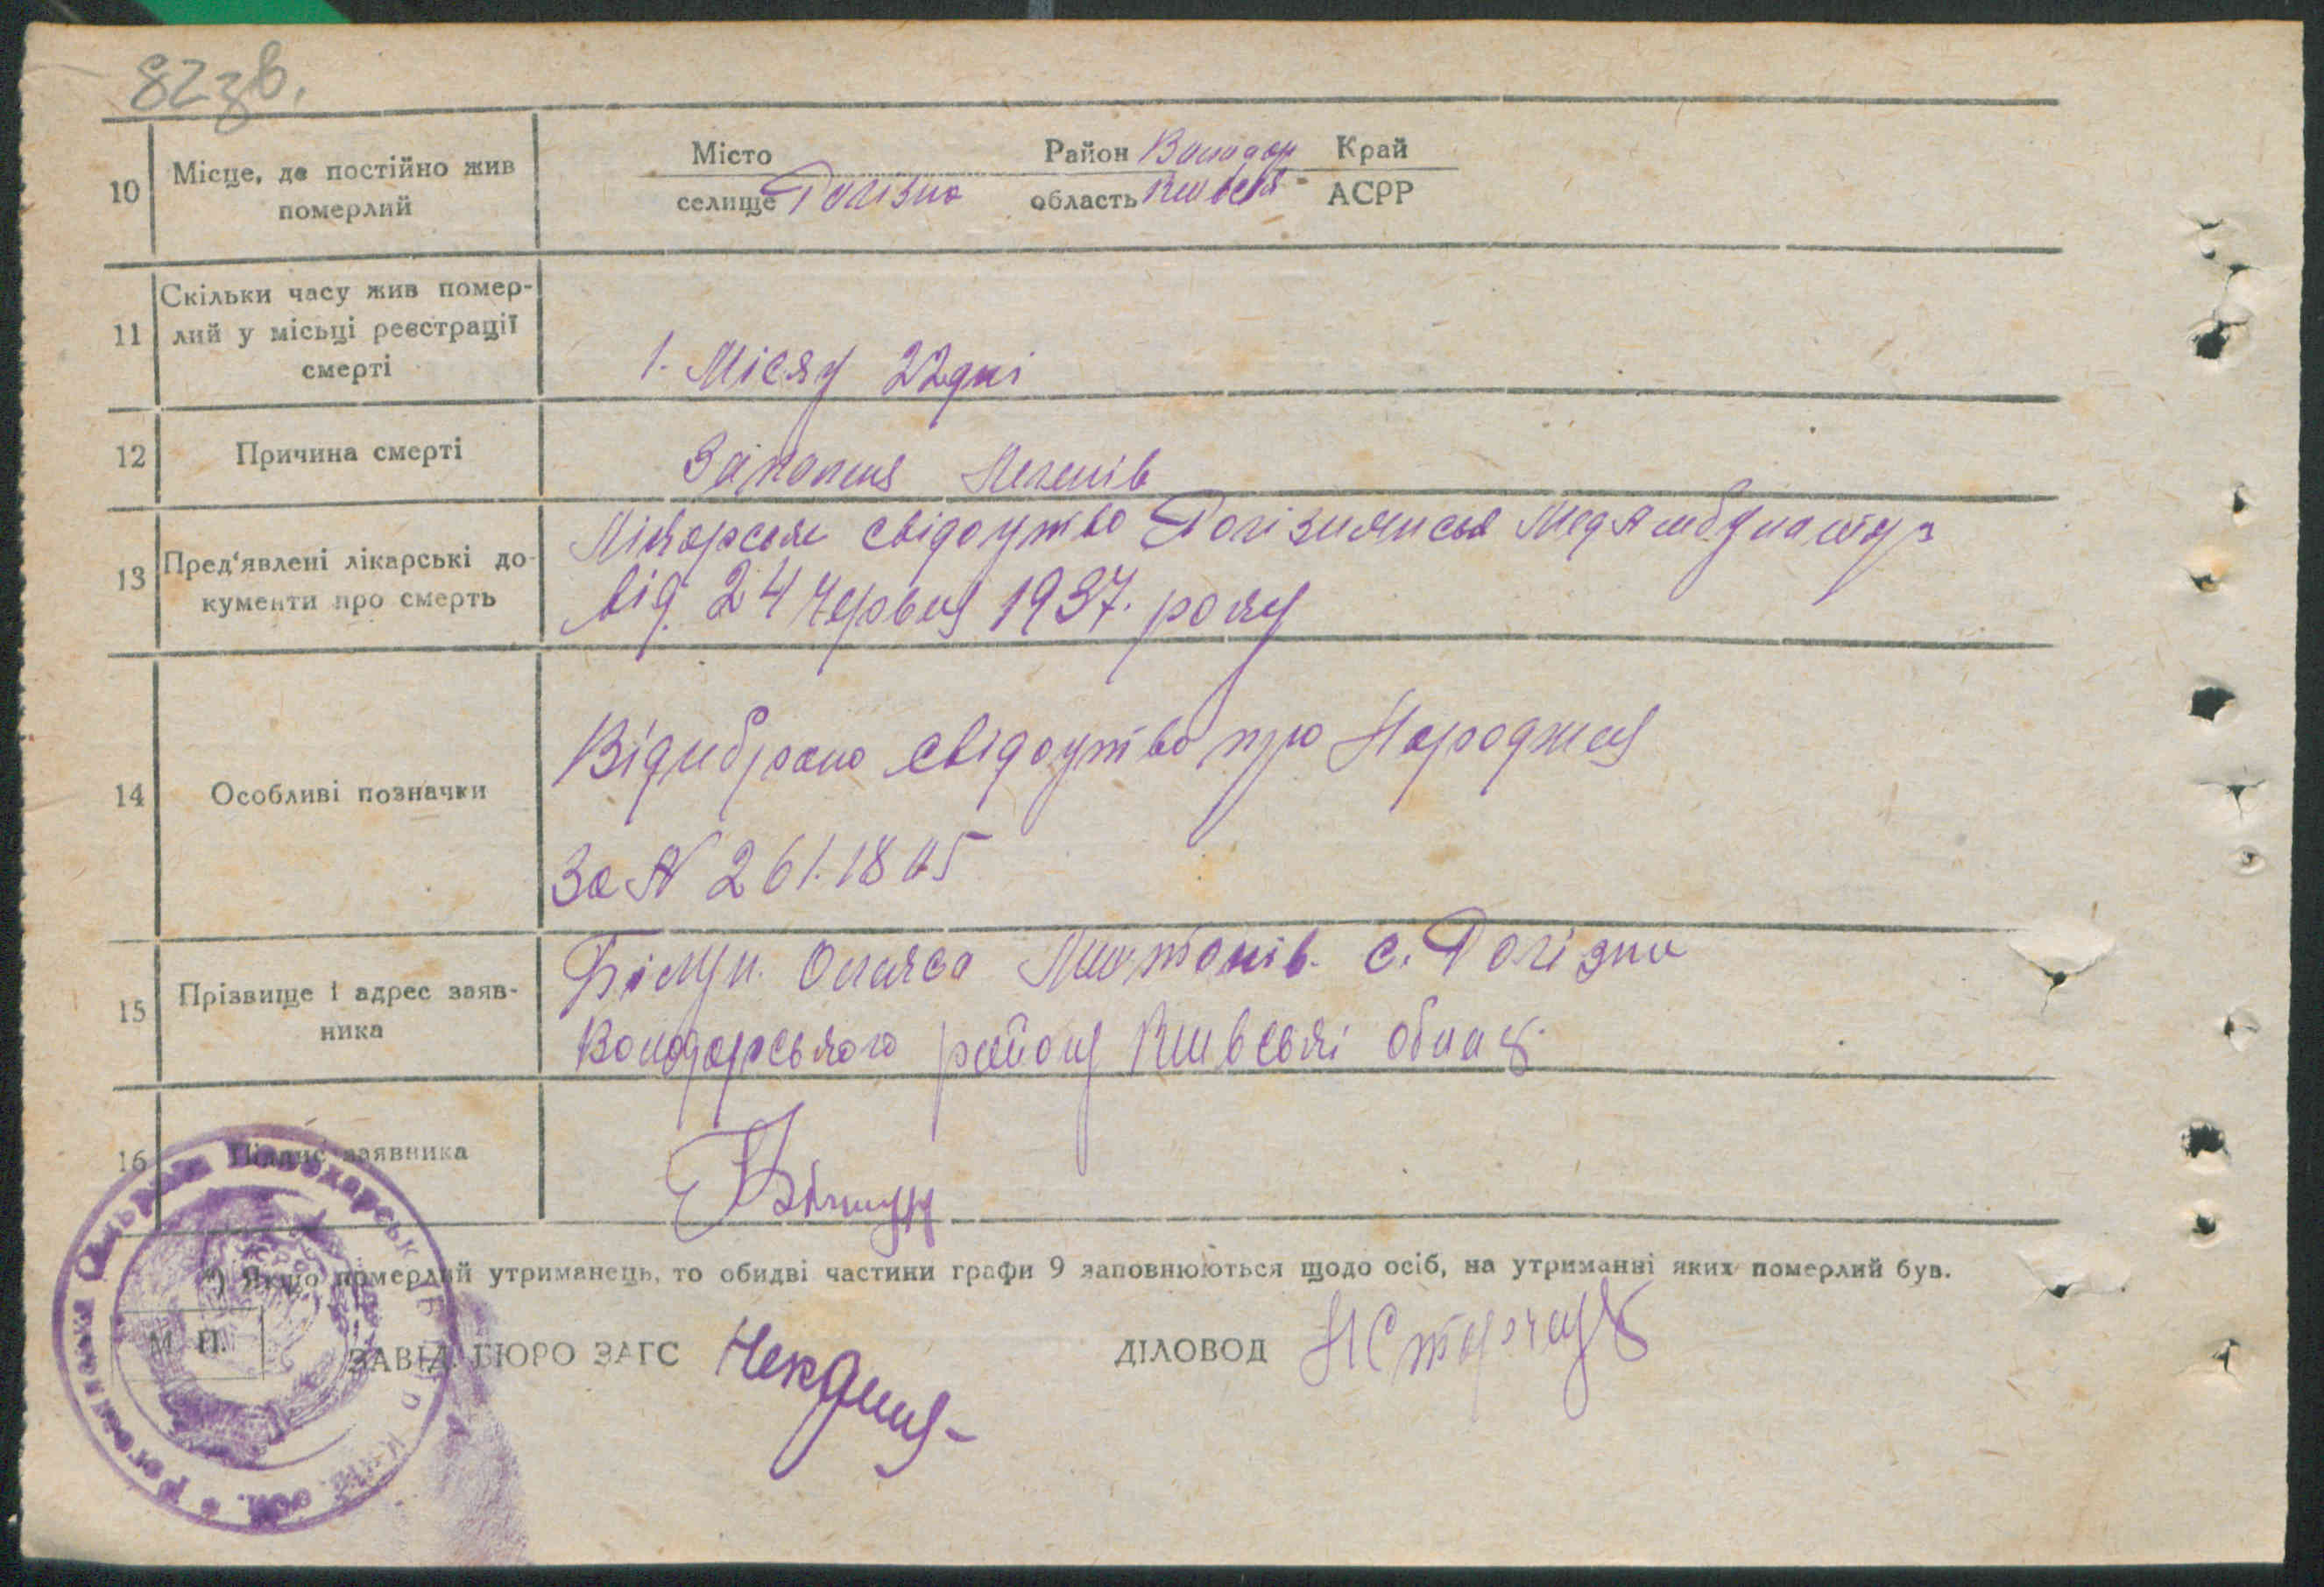 82зв.
10 Місце, де постійно жив померлий
Місто селище Рогізна
Район Володар область Київськ Край АСРР
11 Скільки часу жив помер-
лий у місьці реєстрації
смерті
1. Місяц 22 дні
12 Причина смерті
Запаленя Легенів
13 Пред'явлені лікарські до-
кументи про смерть
Лікарське свідоцтво Рогізнянська МедАмбулаторз
від. 24 червня 1937. року
14 Особливі позначки
Відибрано свідоцтво про Народженя
За № 261.18
15 Прізвище і адрес заяв-
ника
с. Рогізна
Володарського району Київські облас.
16 Підпис заявника
*) Якщо померлий утриманець, то обидві частини графи 9 заповнюються щодо осіб, на утриманні яких померлий був.
М. П.
ЗАВІД. БЮРО ЗАГС
ДІЛОВОД